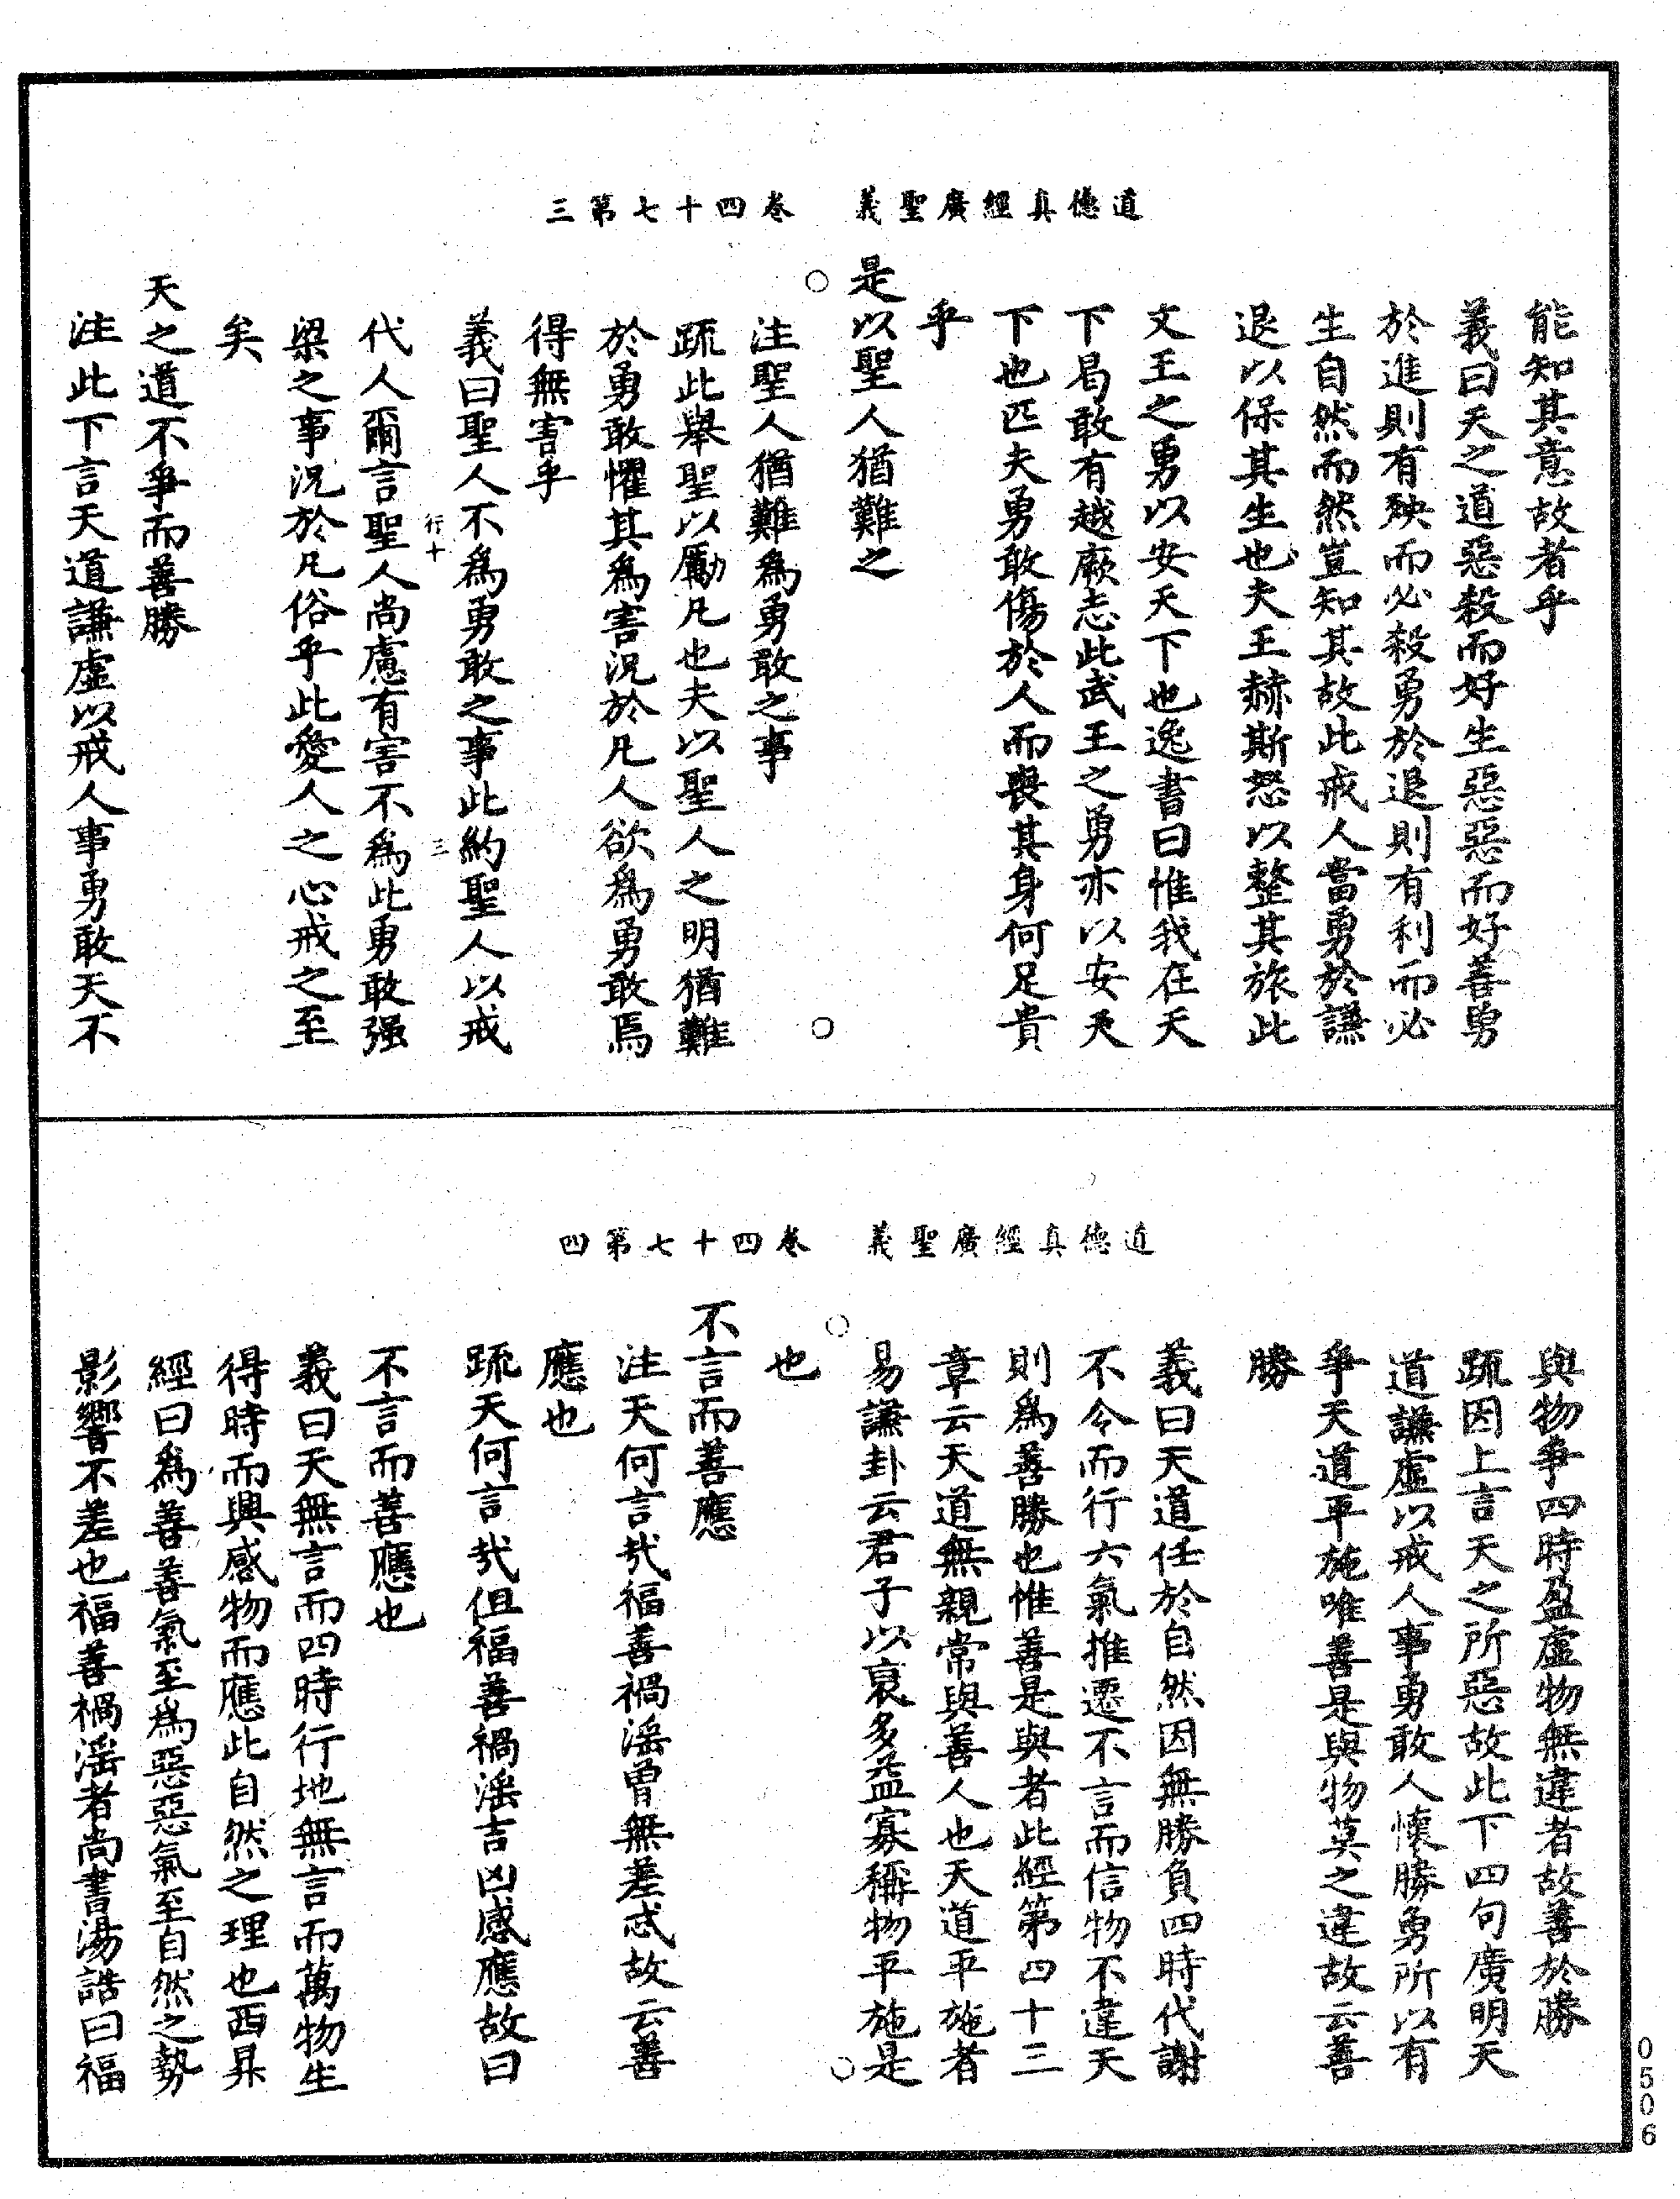 道德真經廣聖義　卷四十七第三
能知其意故者乎
義曰天之道惡殺而好生惡惡而好善勇
於進則有殃而必殺勇於退則有利而必
生自然而然豈知其故此戒人當勇於謙
退以保其生也夫王赫斯怒以整其旅此
文王之勇以安天下也逸書曰惟我在天
下曷敢有越厥志此武王之勇亦以安天
下也匹夫勇敢傷於人而喪其身何足貴
乎
是以聖人猶難之
注聖人猶難為勇敢之事
疏此舉聖以勵凡也夫以聖人之明猶難
於勇敢懼其為害況於凡人欲為勇敢焉
得無害乎
義曰聖人不為勇敢之事此約聖人以戒
行十　三
代人爾言聖人尚慮有害不為此勇敢强
梁之事況於凡俗乎此愛人之心戒之至
矣
天之道不爭而善勝
注此下言天道謙虛以戒人事勇敢天不
道德真經廣聖義　卷四十七第四
與物爭四時盈虛物無違者故善於勝
疏因上言天之所惡故此下四句廣明天
道謙虛以戒人事勇敢人懷勝勇所以有
爭天道平施唯善是與物莫之違故云善
勝
義曰天道任於自然因無勝負四時代謝
不令而行六氣推遷不言而信物不違天
則為善勝也惟善是與者此經第四十三
章云天道無親常與善人也天道平施者
易謙卦云君子以裒多益寡稱物平施是
也
不言而善應
注天何言哉福善禍淫曾無差忒故云善
應也
疏天何言哉但福善禍淫吉凶感應故曰
不言而善應也
義曰天無言而四時行地無言而萬物生
得時而興感物而應此自然之理也西昇
經曰為善善氣至為惡惡氣至自然之勢
影響不差也福善禍淫者尚書湯誥曰福
0506